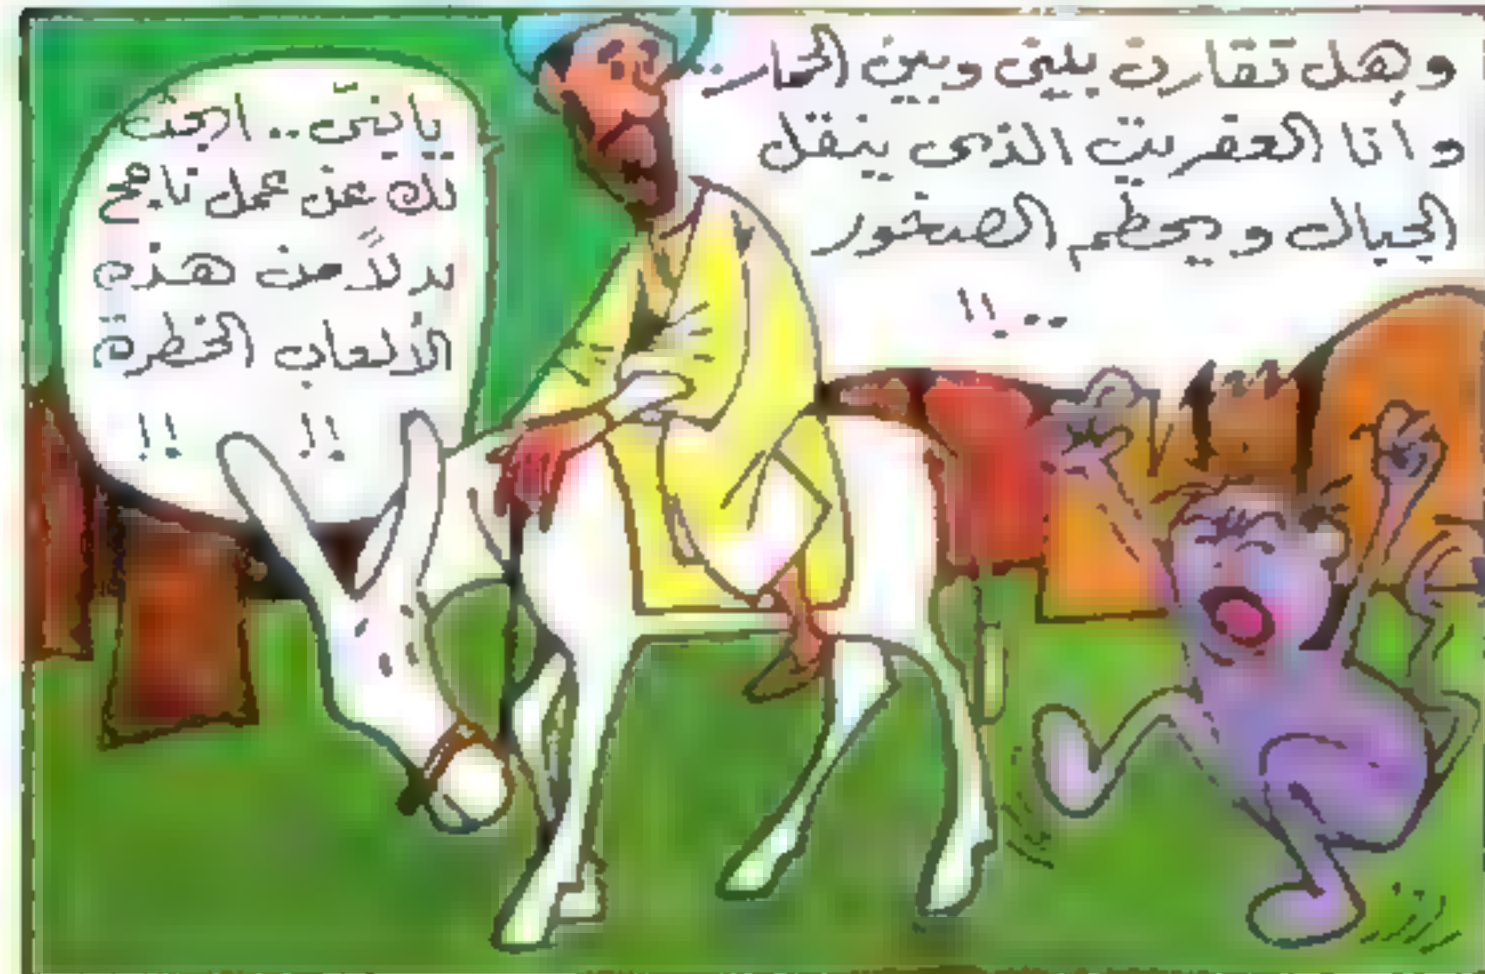 وهل تقارن بيني وبين الحمار..
وأنا العفريت الذي ينقل
الجبال ويحطم الصخور
..!!
يا بنيّ.. ابحث
لك عن عمل ناجح
بدلاً من هذه
الألعاب الخطرة
!! !!